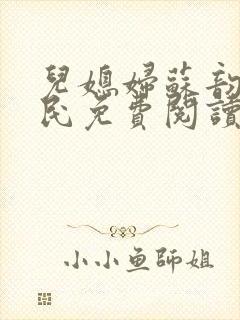 兒媳婦蘇韵
民免費閱讀
小小鱼師姐